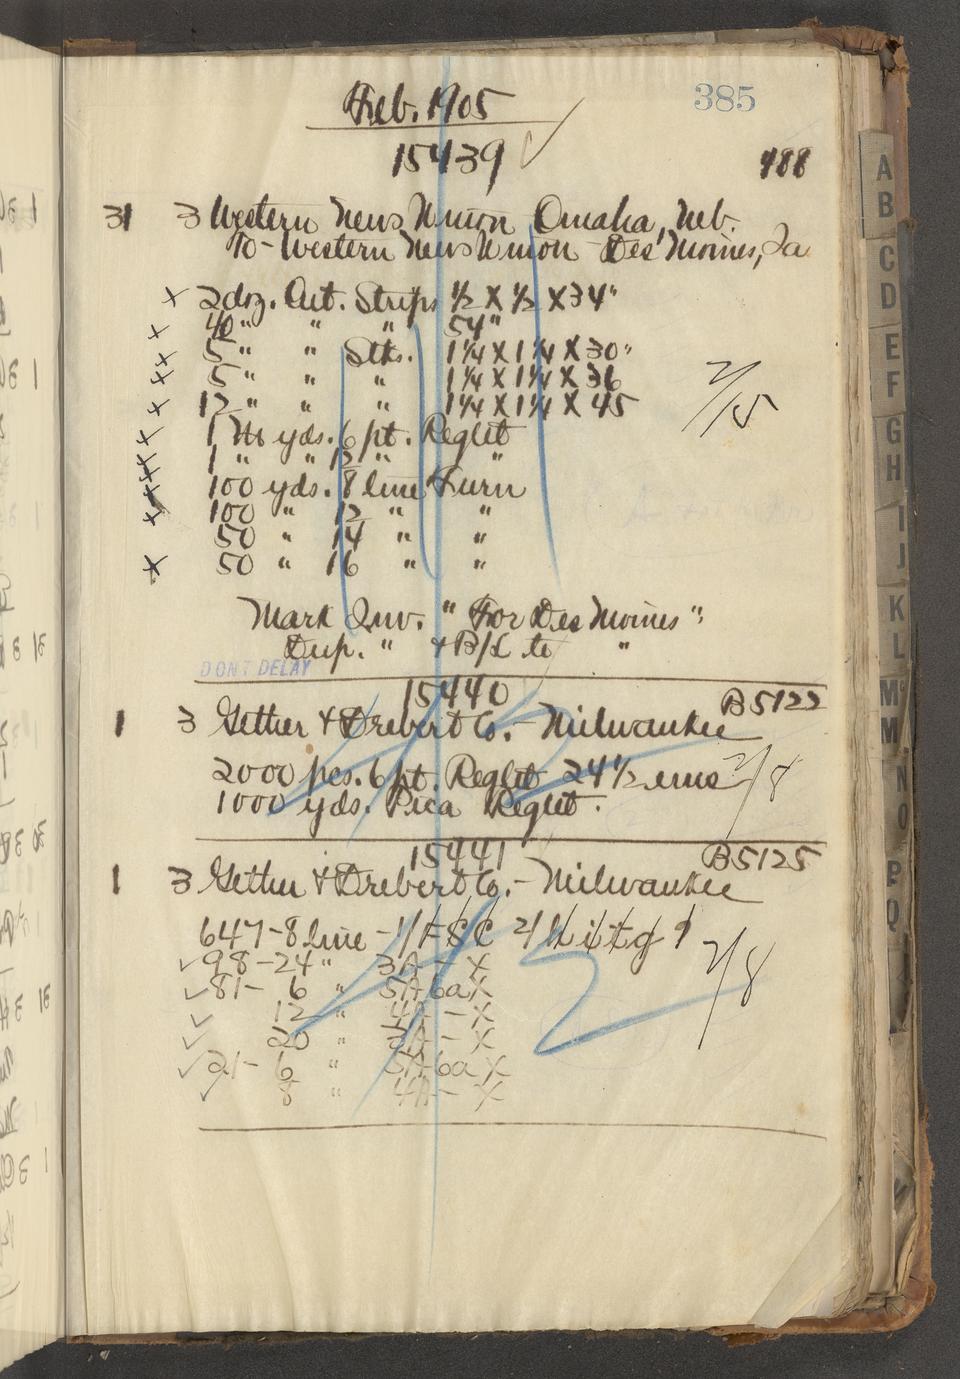 385
Feb. 1905
15439
488
31 3 Western News Union Omaha, Neb.
To - Western News Union - Des Moines, Ia
x 2 doz. Cut. Strips 1/2 X 1/2 X 34"
x 40 " " " 54"
x 5 " " Stks. 1 1/4 X 1 1/4 X 30"
x 5 " " " 1 1/4 X 1 1/4 X 36
x 12 " " " 1 1/4 X 1 1/4 X 45
2/15
x 1 M yds. 6 pt. Reglet
x 1 " " 12 " "
x 100 yds. 8 line Furn
x 100 " 12 " "
50 " 14 " "
x 50 " 16 " "
Mark Inv. "For Des Moines"
Dup. " + B/L to "
DON'T DELAY
15440
B5122
1 3 Gether & Drebert Co. - Milwaukee
2000 pcs. 6 pt. Reglet 24 1/2 ems
2/8
1000 yds. Pica Reglet.
15441
B5125
1 3 Gether & Drebert Co. - Milwaukee
647 - 8 line -
98 - 24 " 3A - X
2/8
81 - 6 " 5A 6a X
12 " 4A - X
20 " 3A - X
21 - 6 " 5A 6a X
8 " 4A - X
A
B
C
D
E
F
G
H
I
J
K
L
Mc
M
N
O
P
Q